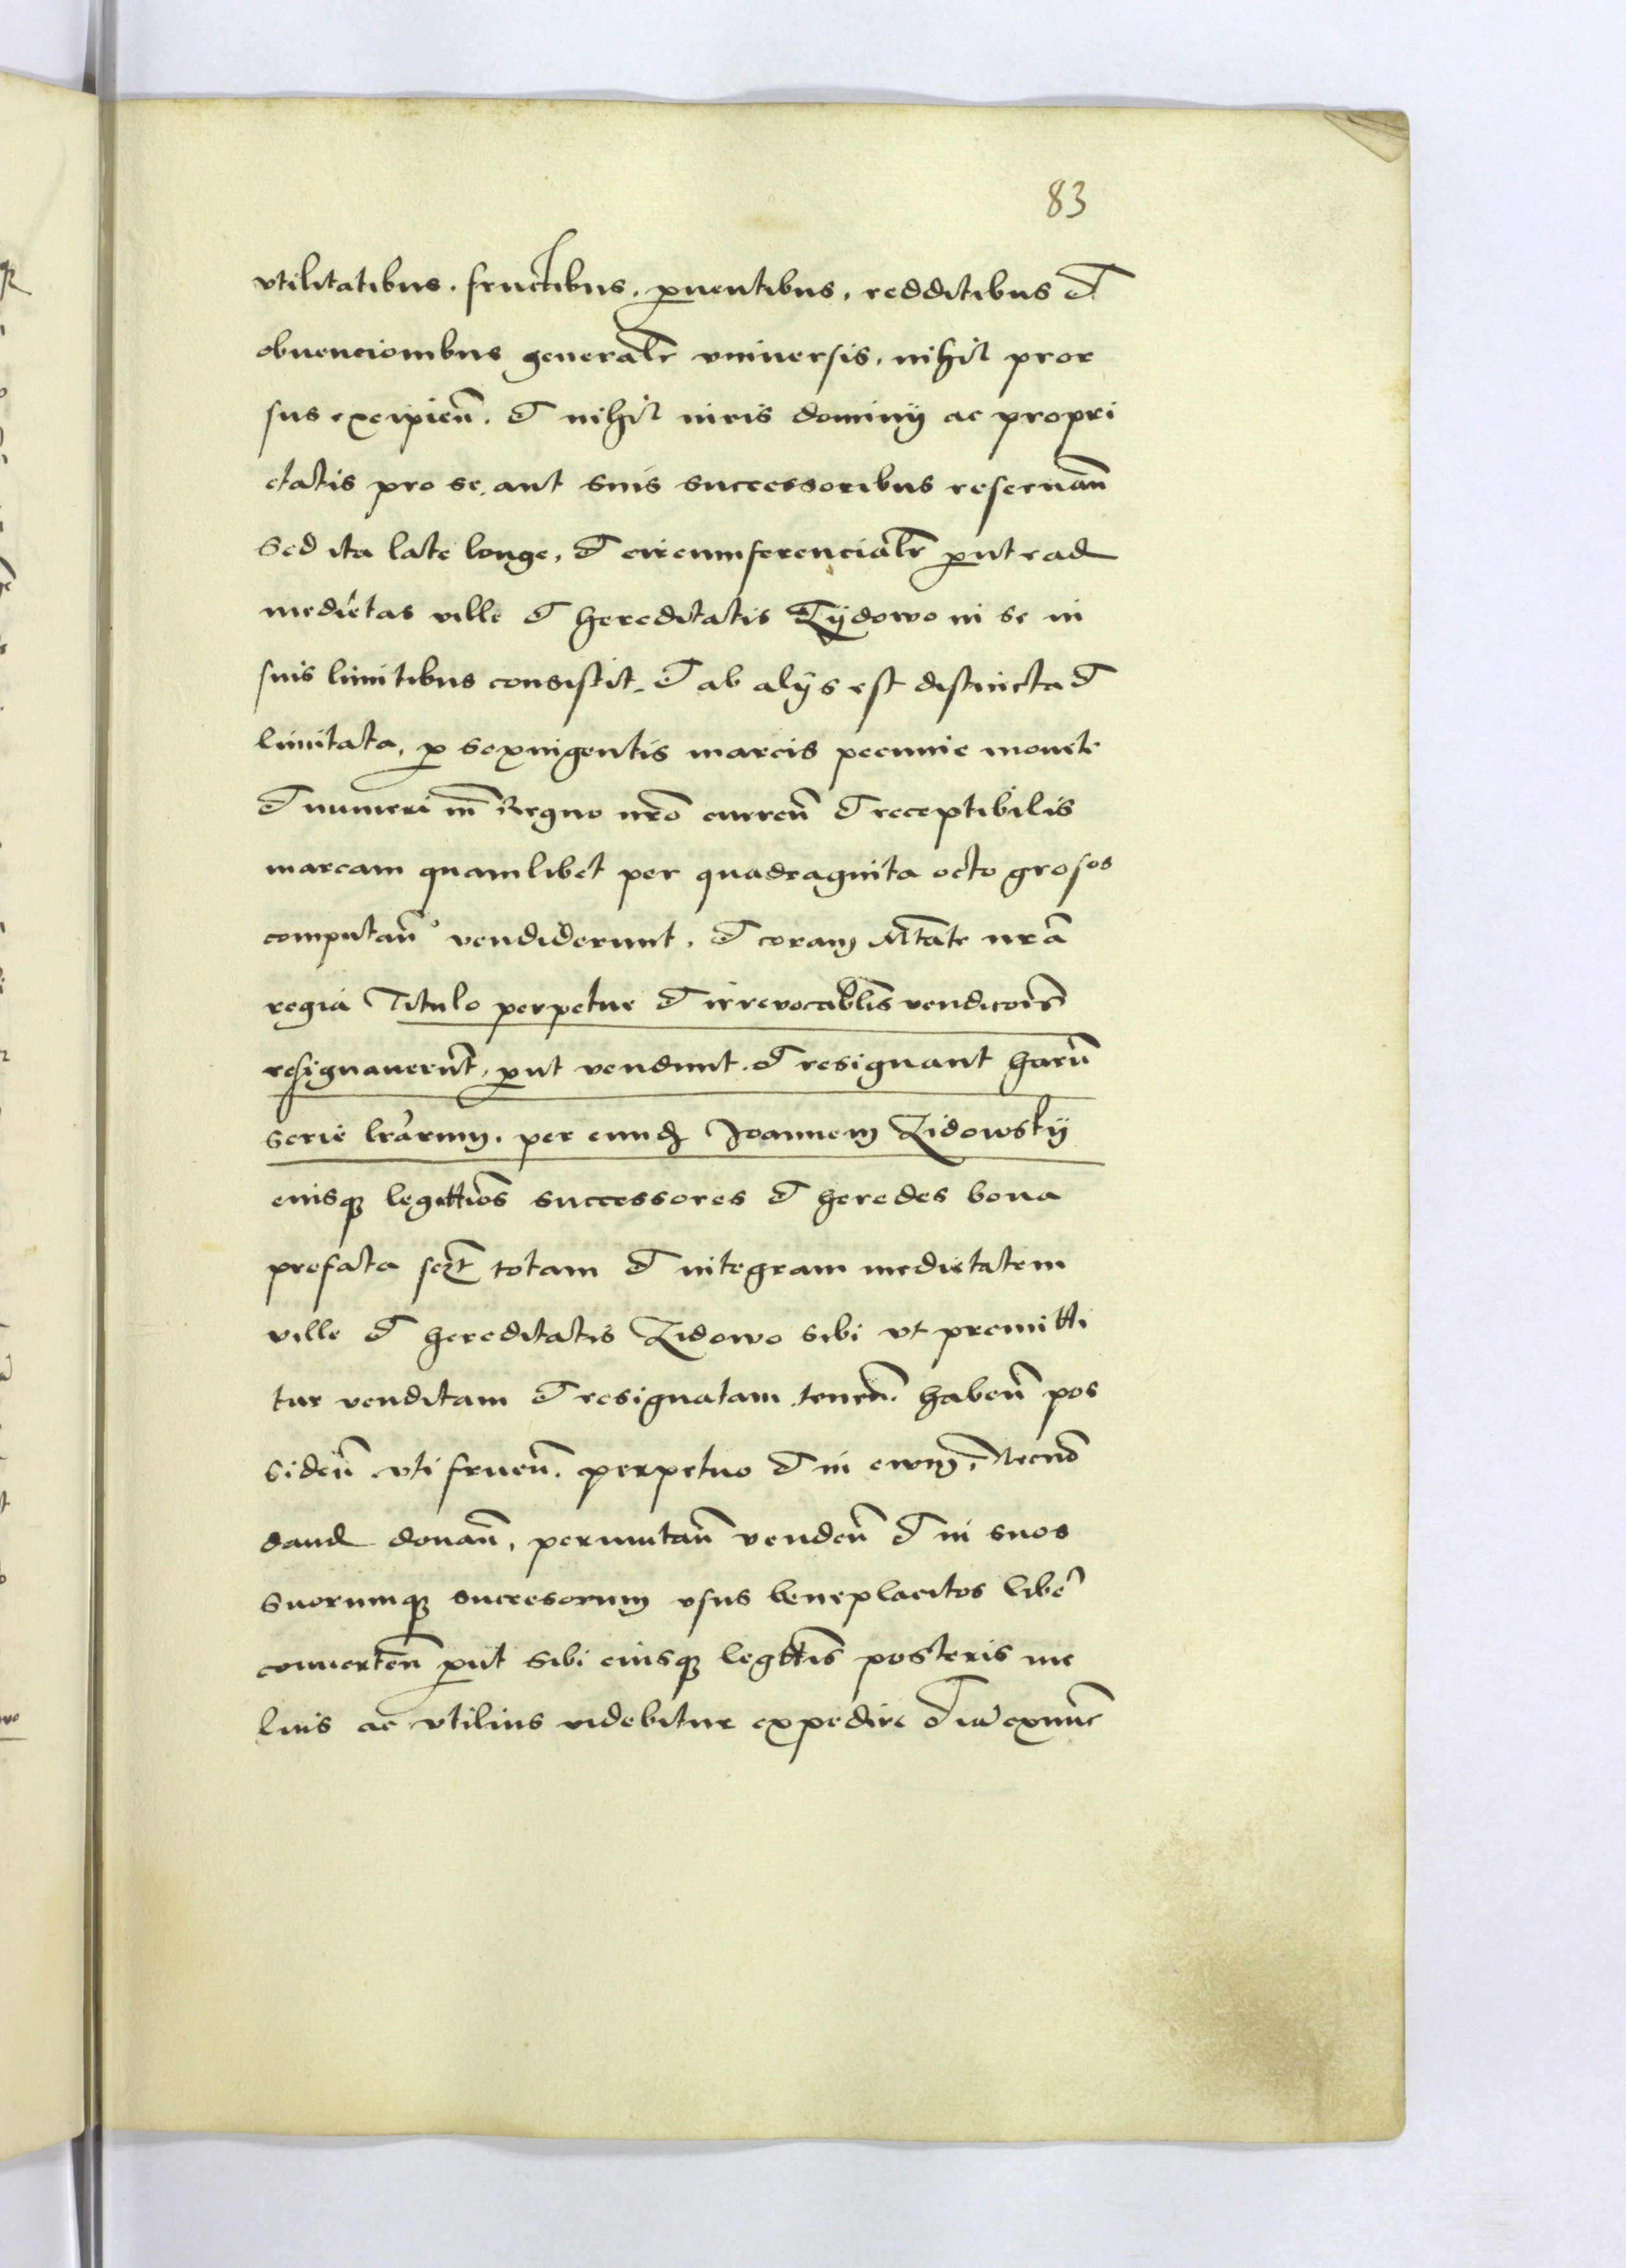 83
vtilitatibus. fructibus. ꝓuentibus, redditibus et
obuencionibus generalr vniuersis, nihil pror
sus excipien̄. et nihil iuris dominy ac propri
etatis pro se, aut suis successoribus reseruan̄
Sed ita late longe, et circumferencialr ꝓut ead
medietas ville et hereditatis Zydowo in se in
suis limitibus consistit, et ab alys est distincta et
limitata, ꝓ sexingentis marcis pecunie monete
et numeri in Regno nr̄o curren̄ et receptibilis
marcam quamlibet per quadraginta octo grosos
computan̄ vendiderunt, et coram Mtate nrā
regia Titulo perpetue et irreuocablis vendicois
resignauerūt, ꝓut vendunt et resignant harū
serie lrārum, per eund Joannem Zidowsky
eiusqꝫ legittios successores et heredes bona
prefata sczt totam et integram medietatem
ville et hereditatis Zidowo sibi vt premitti
tur venditam et resignatam tenen̄. haben̄ pos
siden̄ vti fruen̄. perpetuo et in ewm, Necno
dand donan̄, permutan̄ venden̄ et in suos
suorumqꝫ succesorum vsus beneplacitos libē
conuerten̄ ꝓut sibi eiusqꝫ legttis posteris me
lius ac vtilius videbitur expedire et iā exnunc